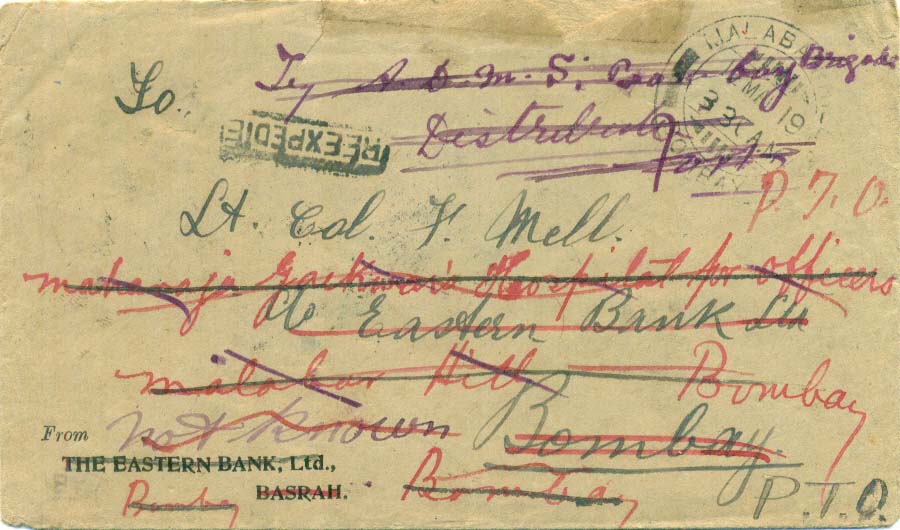 Try A. D. M. S. Brigade
To.
Distribution
REEXPEDIE
MALABA
MA 19
P. T. O.
Lt. Col. F. Mell.
maharaja Gaekwar's Hospital for officers
c/o Eastern Bank Ltd
malabar Hill Bombay
not known Bombay
From
THE EASTERN BANK, Ltd.,
BASRAH.
Bombay Bombay
P.T.O.